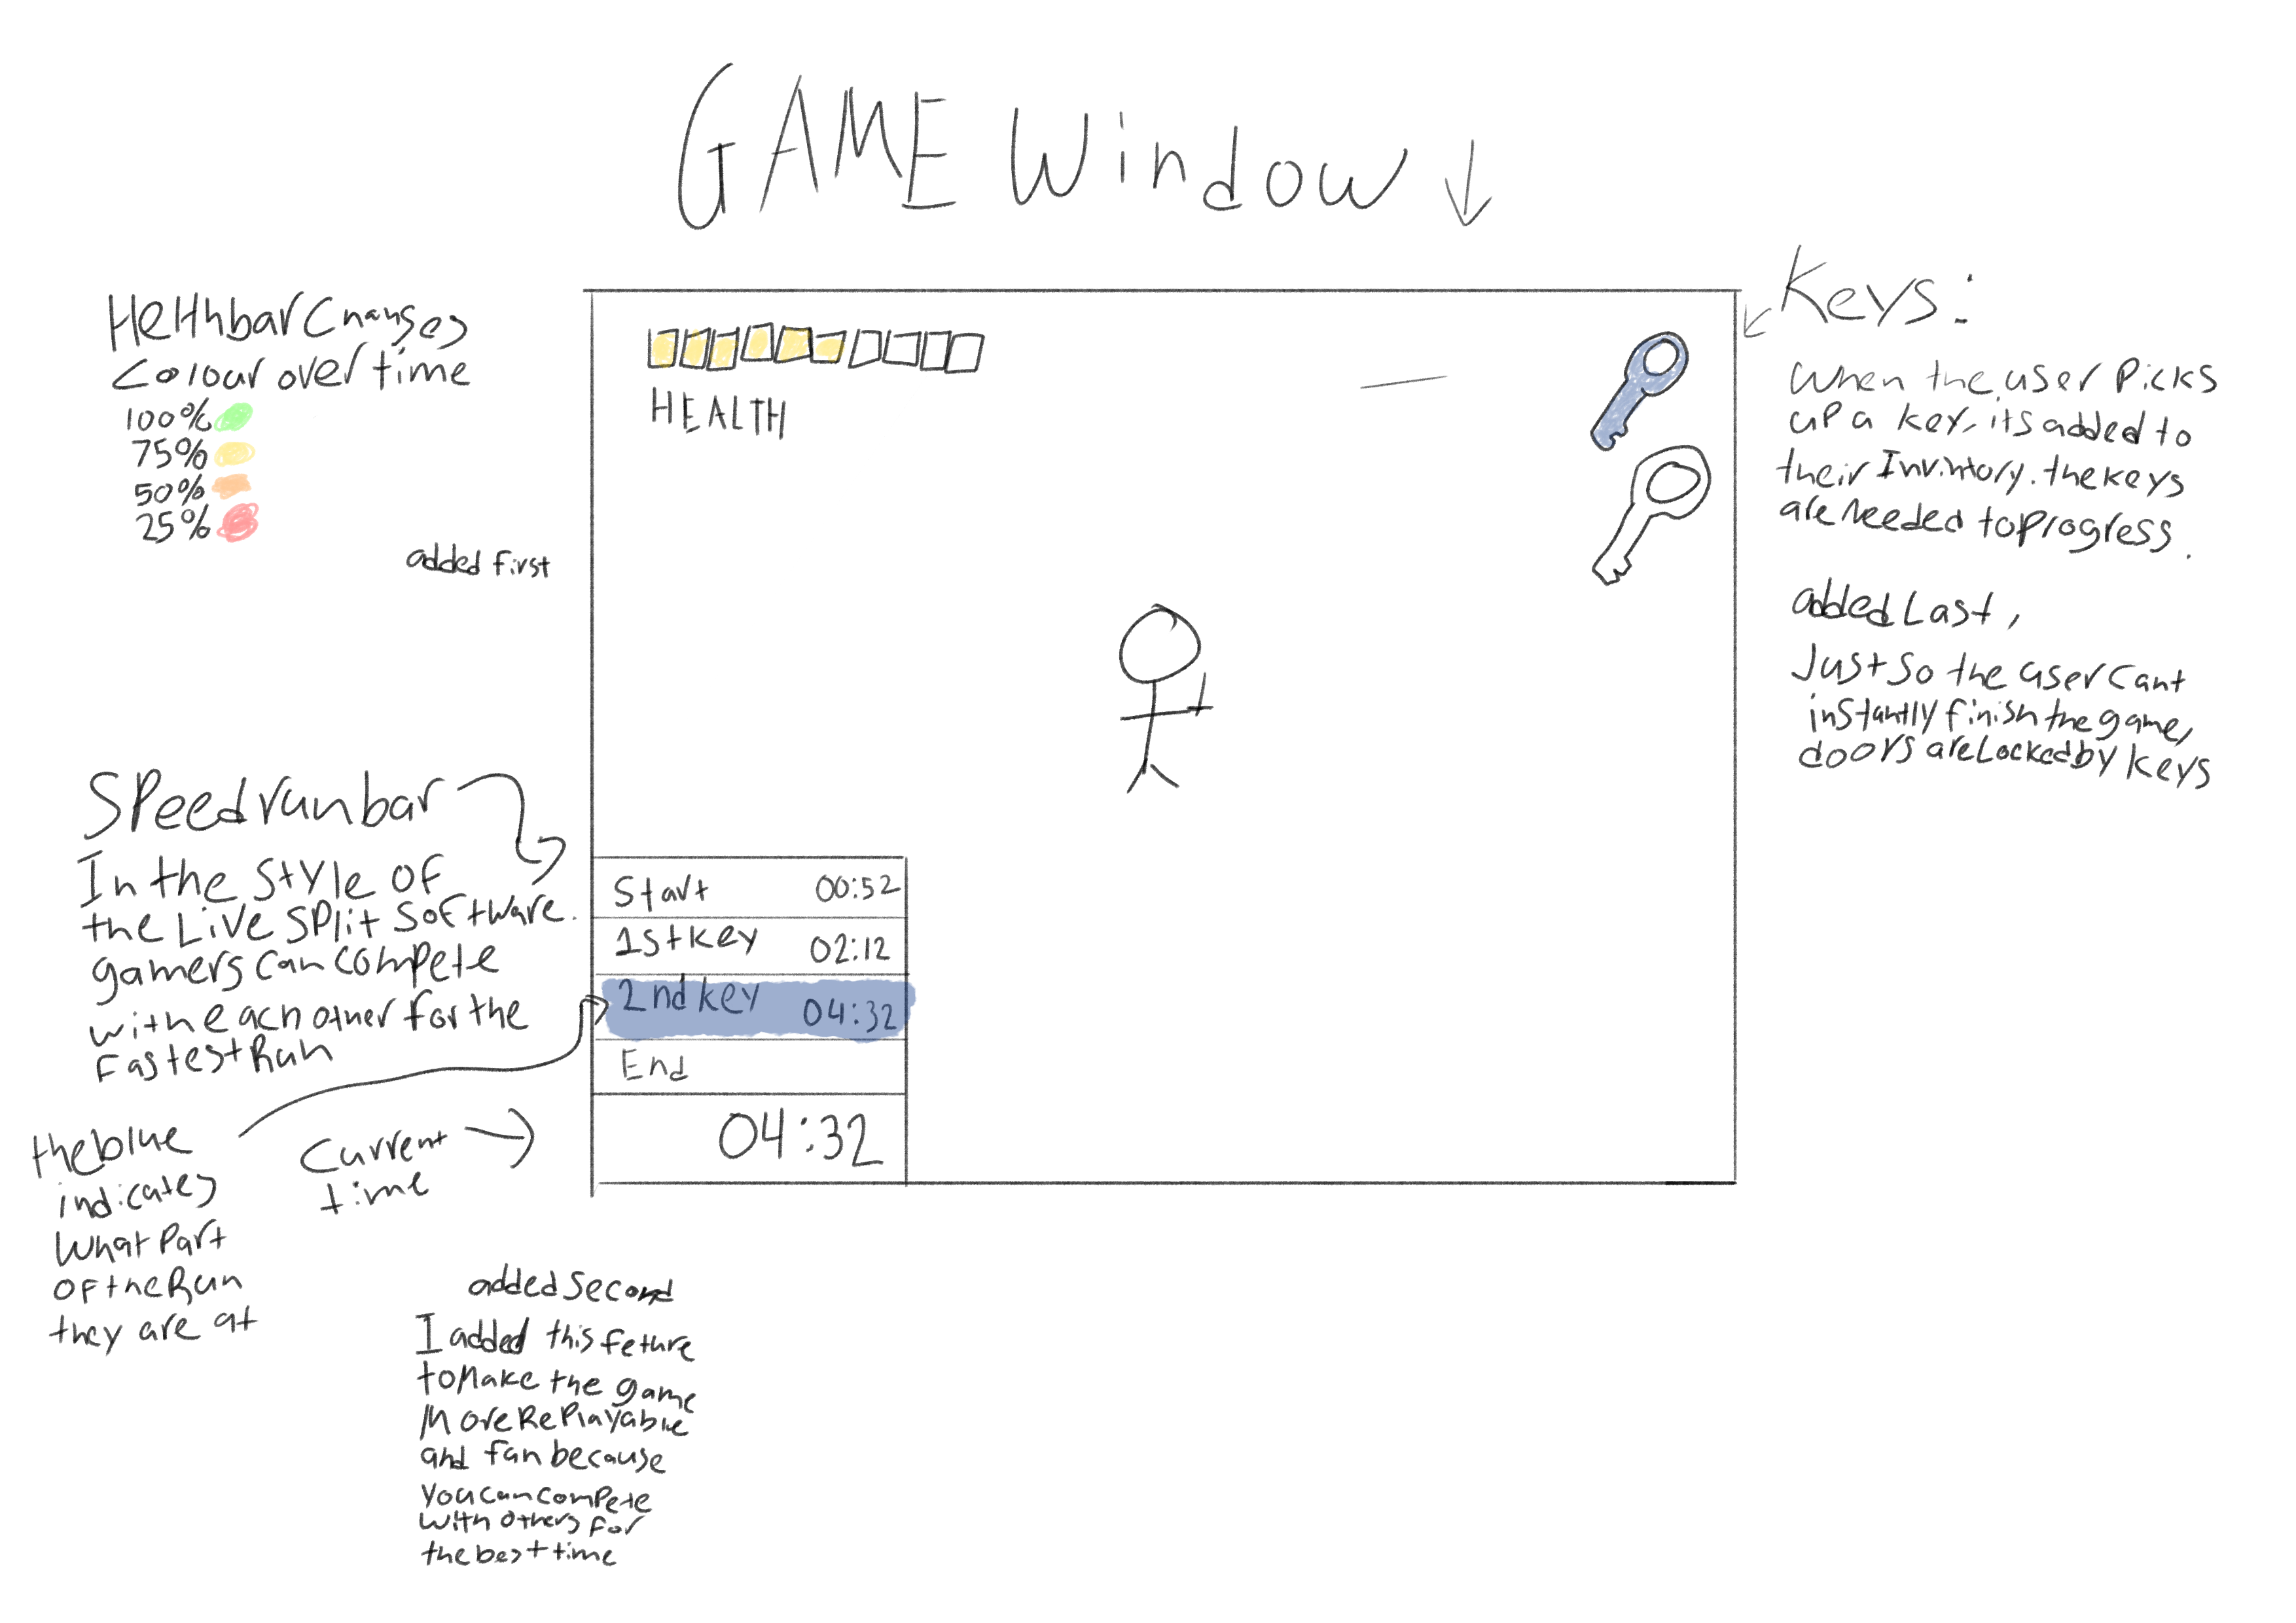 GAME Window ↓
Helthbar Changes
Colour over time
100%
75%
50%
25%
added first
HEALTH
Keys:
When the user Picks
up a key, its added to
their Inventory. the keys
are Needed to Progress.
added Last,
Just so the user cant
instantly finish the game,
doors are Locked by keys
Speedrun bar
In the style of
the Live Split Software.
gamers can compete
with each other for the
Fastest Run
Start 00:52
1st key 02:12
2nd key 04:32
End
04:32
the blue
indicates
What Part
OF the Run
they are at
Current
time
added Second
I added this feture
to Make the game
More RePlayable
and fun because
you can compete
with others For
the best time